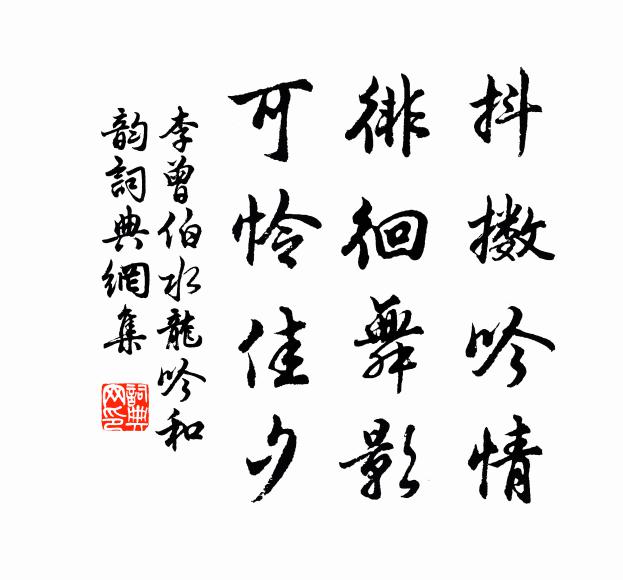 抖擻吟情
徘徊舞影
可怜佳夕
李曾伯水龍吟和
韵詞典網集
詞典网印